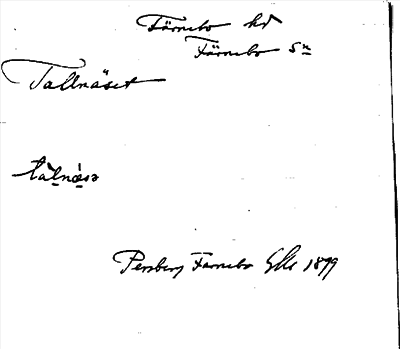 Färnebo hd
Färnebo sn
Tallnäset
tàlnǽsə
Persberg Färnebo GKs 1899